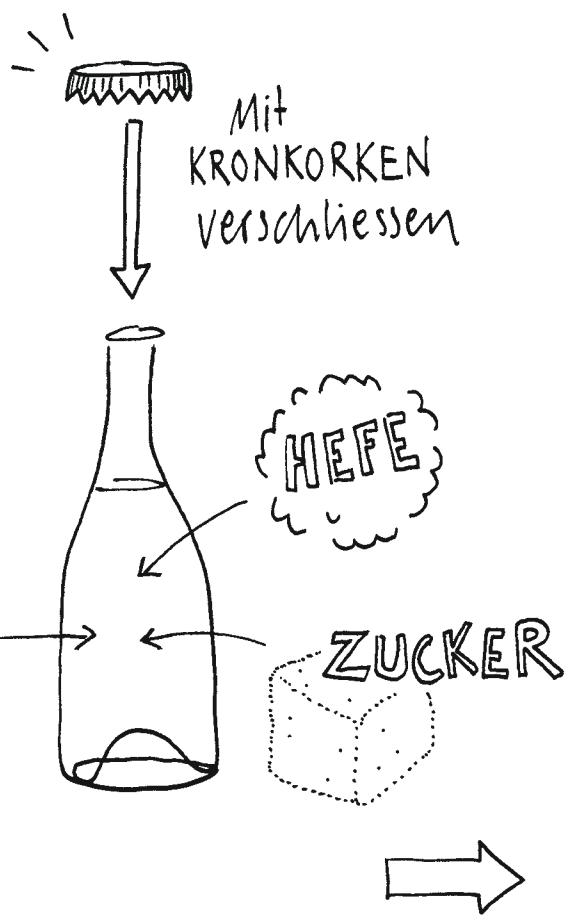 Mit
KRONKORKEN
verschliessen
HEFE
ZUCKER